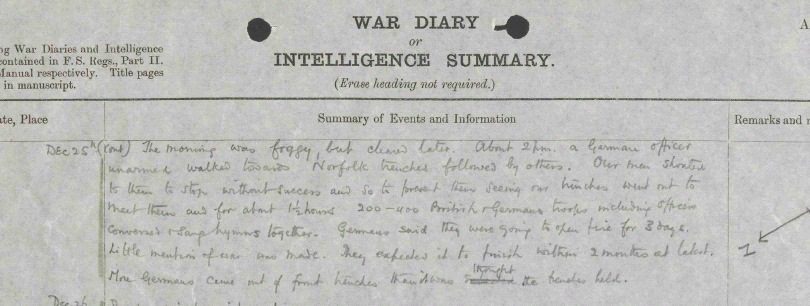 WAR DIARY
A
or
ng War Diaries and Intelligence
INTELLIGENCE SUMMARY.
contained in F. S. Regs., Part II.
Manual respectively. Title pages
(Erase heading not required.)
in manuscript.
ate, Place
Summary of Events and Information
Remarks and r
Dec 25th (cont) The morning was foggy, but cleared later. About 2pm. a German officer
unarmed walked towards Norfolk trenches followed by others. Our men shouted
to them to stop without success and so to prevent them seeing our trenches went out to
meet them and for about 1½ hours 200-400 British & Germans troops including officers
conversed & sang hymns together. Germans said they were going to open fire for 3 days.
Little mention of war was made. They expected it to finish within 2 months at latest.
1
More Germans came out of front trenches than it was thought the trenches held.
Dec 26